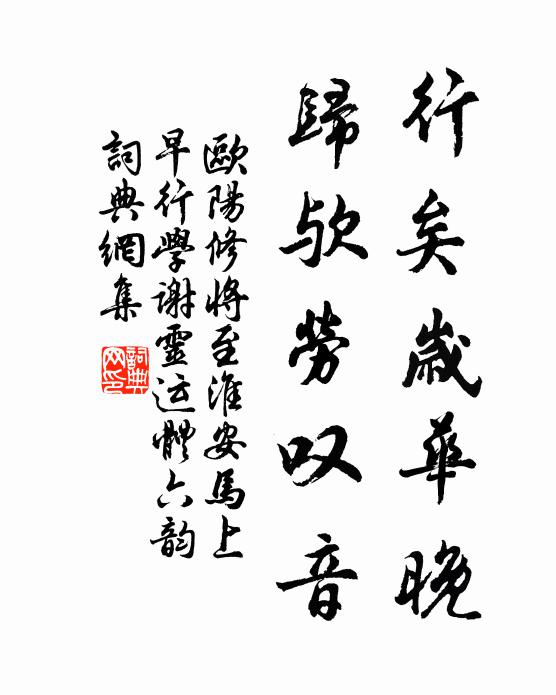 行矣歲華晚
歸欤勞叹音
歐陽修將至淮安馬上
早行學謝靈运體六韵
詞典網集
詞典
网印